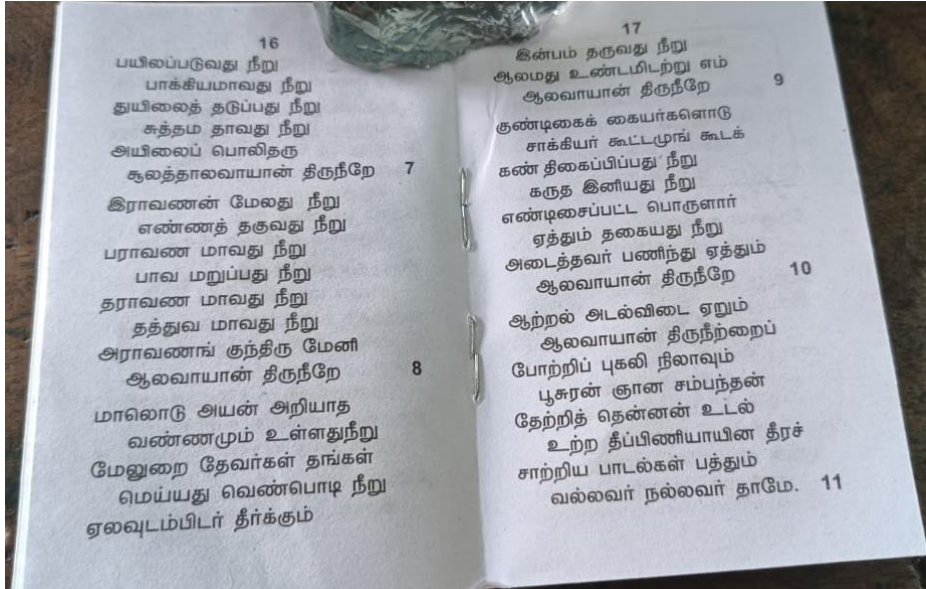 16
பயிலப்படுவது நீறு
பாக்கியமாவது நீறு
துயிலைத் தடுப்பது நீறு
சுத்தம தாவது நீறு
அயிலைப் பொலிதரு
சூலத்தாலவாயான் திருநீறே 7
இராவணன் மேலது நீறு
எண்ணத் தகுவது நீறு
பராவண மாவது நீறு
பாவ மறுப்பது நீறு
தராவண மாவது நீறு
தத்துவ மாவது நீறு
அராவணங் குந்திரு மேனி
ஆலவாயான் திருநீறே 8
மாலொடு அயன் அறியாத
வண்ணமும் உள்ளதுநீறு
மேலுறை தேவர்கள் தங்கள்
மெய்யது வெண்பொடி நீறு
ஏலவுடம்பிடர் தீர்க்கும்
17
இன்பம் தருவது நீறு
ஆலமது உண்டமிடற்று எம்
ஆலவாயான் திருநீறே 9
குண்டிகைக் கையர்களொடு
சாக்கியர் கூட்டமுங் கூடக்
கண் திகைப்பிப்பது நீறு
கருத இனியது நீறு
எண்டிசைப்பட்ட பொருளார்
ஏத்தும் தகையது நீறு
அடைத்தவர் பணிந்து ஏத்தும்
ஆலவாயான் திருநீறே 10
ஆற்றல் அடல்விடை ஏறும்
ஆலவாயான் திருநீற்றைப்
போற்றிப் புகலி நிலாவும்
பூசுரன் ஞான சம்பந்தன்
தேற்றித் தென்னன் உடல்
உற்ற தீப்பிணியாயின தீரச்
சாற்றிய பாடல்கள் பத்தும்
வல்லவர் நல்லவர் தாமே. 11